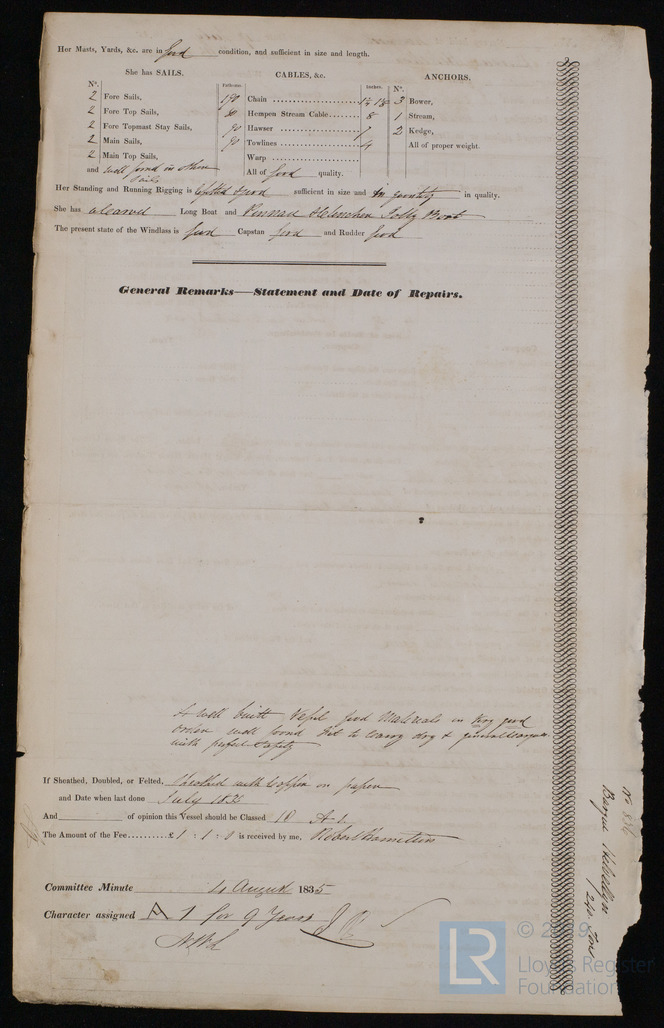 Her Masts, Yards, &c. are in good condition, and sufficient in size and length.
She has SAILS. CABLES, &c. ANCHORS.
Nº. Fathoms. Inches. Nº.
2 Fore Sails, Chain 3 Bower,
2 Fore Top Sails, 80 Hempen Stream Cable 8 1 Stream,
2 Fore Topmast Stay Sails, 90 Hawser 7 2 Kedge,
2 Main Sails, 90 Towlines 4 All of proper weight.
2 Main Top Sails, Warp
and well found in other Sails All of good quality.
Her Standing and Running Rigging is good sufficient in size and in quality.
She has Long Boat and Jolly Boat
The present state of the Windlass is good Capstan good and Rudder good
General Remarks—Statement and Date of Repairs.
Is well built good Materials in very good
order well found fit to carry dry &
with perfect Safety
If Sheathed, Doubled, or Felted, Sheathed with Copper on paper
and Date when last done July
And of opinion this Vessel should be Classed 10 A 1
The Amount of the Fee £1 : 1 : 0 is received by me,
Committee Minute 4 August 1835
Character assigned A 1 for 9 Years
Barque
240 Tons
© 2019
Lloyd's Register
Foundation
LR